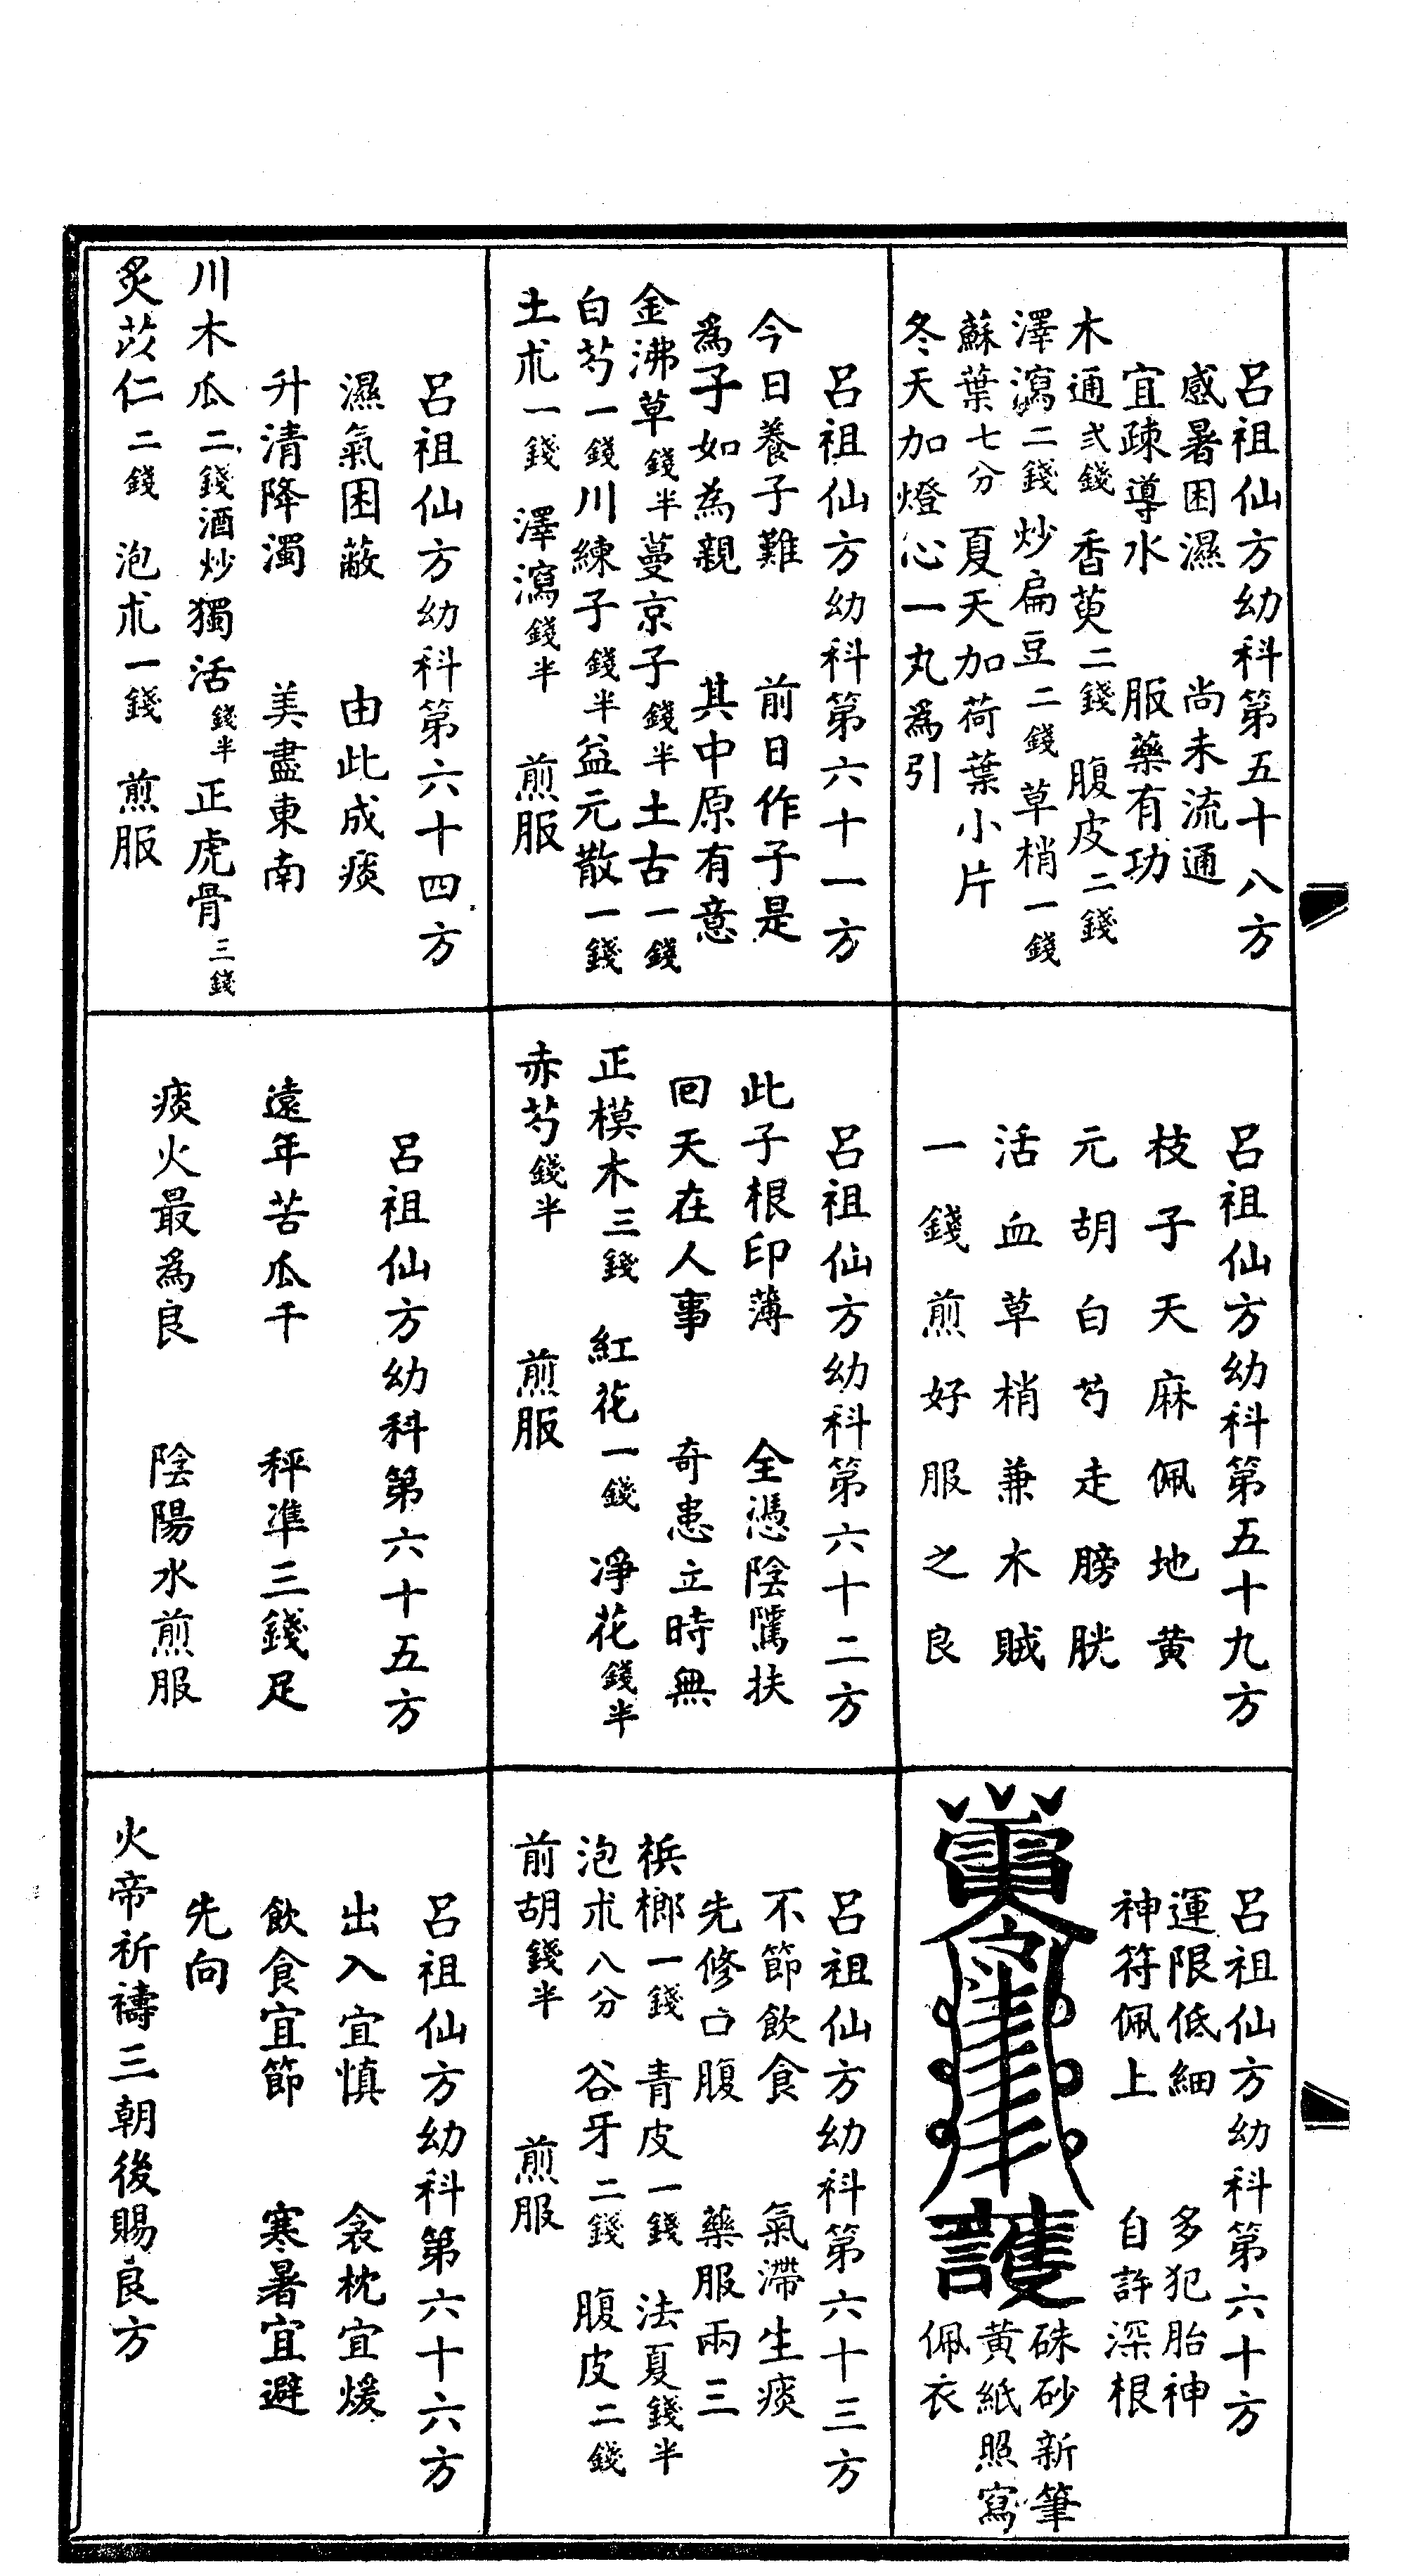 呂祖仙方幼科第五十八方
感暑困濕　尚未流通
宜疎導水　服藥有功
木通弍錢　香萸二錢　腹皮二錢
澤瀉二錢　炒扁豆二錢　草梢一錢
蘇葉七分　夏天加荷葉小片
冬天加燈心一丸為引
呂祖仙方幼科第五十九方
枝子天麻佩地黃
元胡白芍走膀胱
活血草梢兼木賊
一錢煎好服之良
呂祖仙方幼科第六十方
運限低細　多犯胎神
神符佩上　自許深根
護
硃砂新筆
黃紙照寫
佩衣
呂祖仙方幼科第六十一方
今日養子難　前日作子是
為子如為親　其中原有意
金沸草錢半　蔓京子錢半　土古一錢
白芍一錢　川練子錢半　益元散一錢
土朮一錢　澤瀉錢半　煎服
呂祖仙方幼科第六十二方
此子根印薄　全憑陰騭扶
回天在人事　奇患立時無
正模木三錢　紅花一錢　凈花錢半
赤芍錢半　煎服
呂祖仙方幼科第六十三方
不節飲食　氣滯生痰
先修口腹　藥服兩三
梹榔一錢　青皮一錢　法夏錢半
泡朮八分　谷牙二錢　腹皮二錢
前胡錢半　煎服
呂祖仙方幼科第六十四方
濕氣困蔽　由此成痰
升清降濁　美盡東南
川木瓜二錢酒炒　獨活錢半　正虎骨三錢
炙苡仁二錢　泡朮一錢　煎服
呂祖仙方幼科第六十五方
遠年苦瓜干　秤準三錢足
痰火最為良　陰陽水煎服
呂祖仙方幼科第六十六方
出入宜慎　衾枕宜煖
飲食宜節　寒暑宜避
先向
火帝祈禱三朝後賜良方